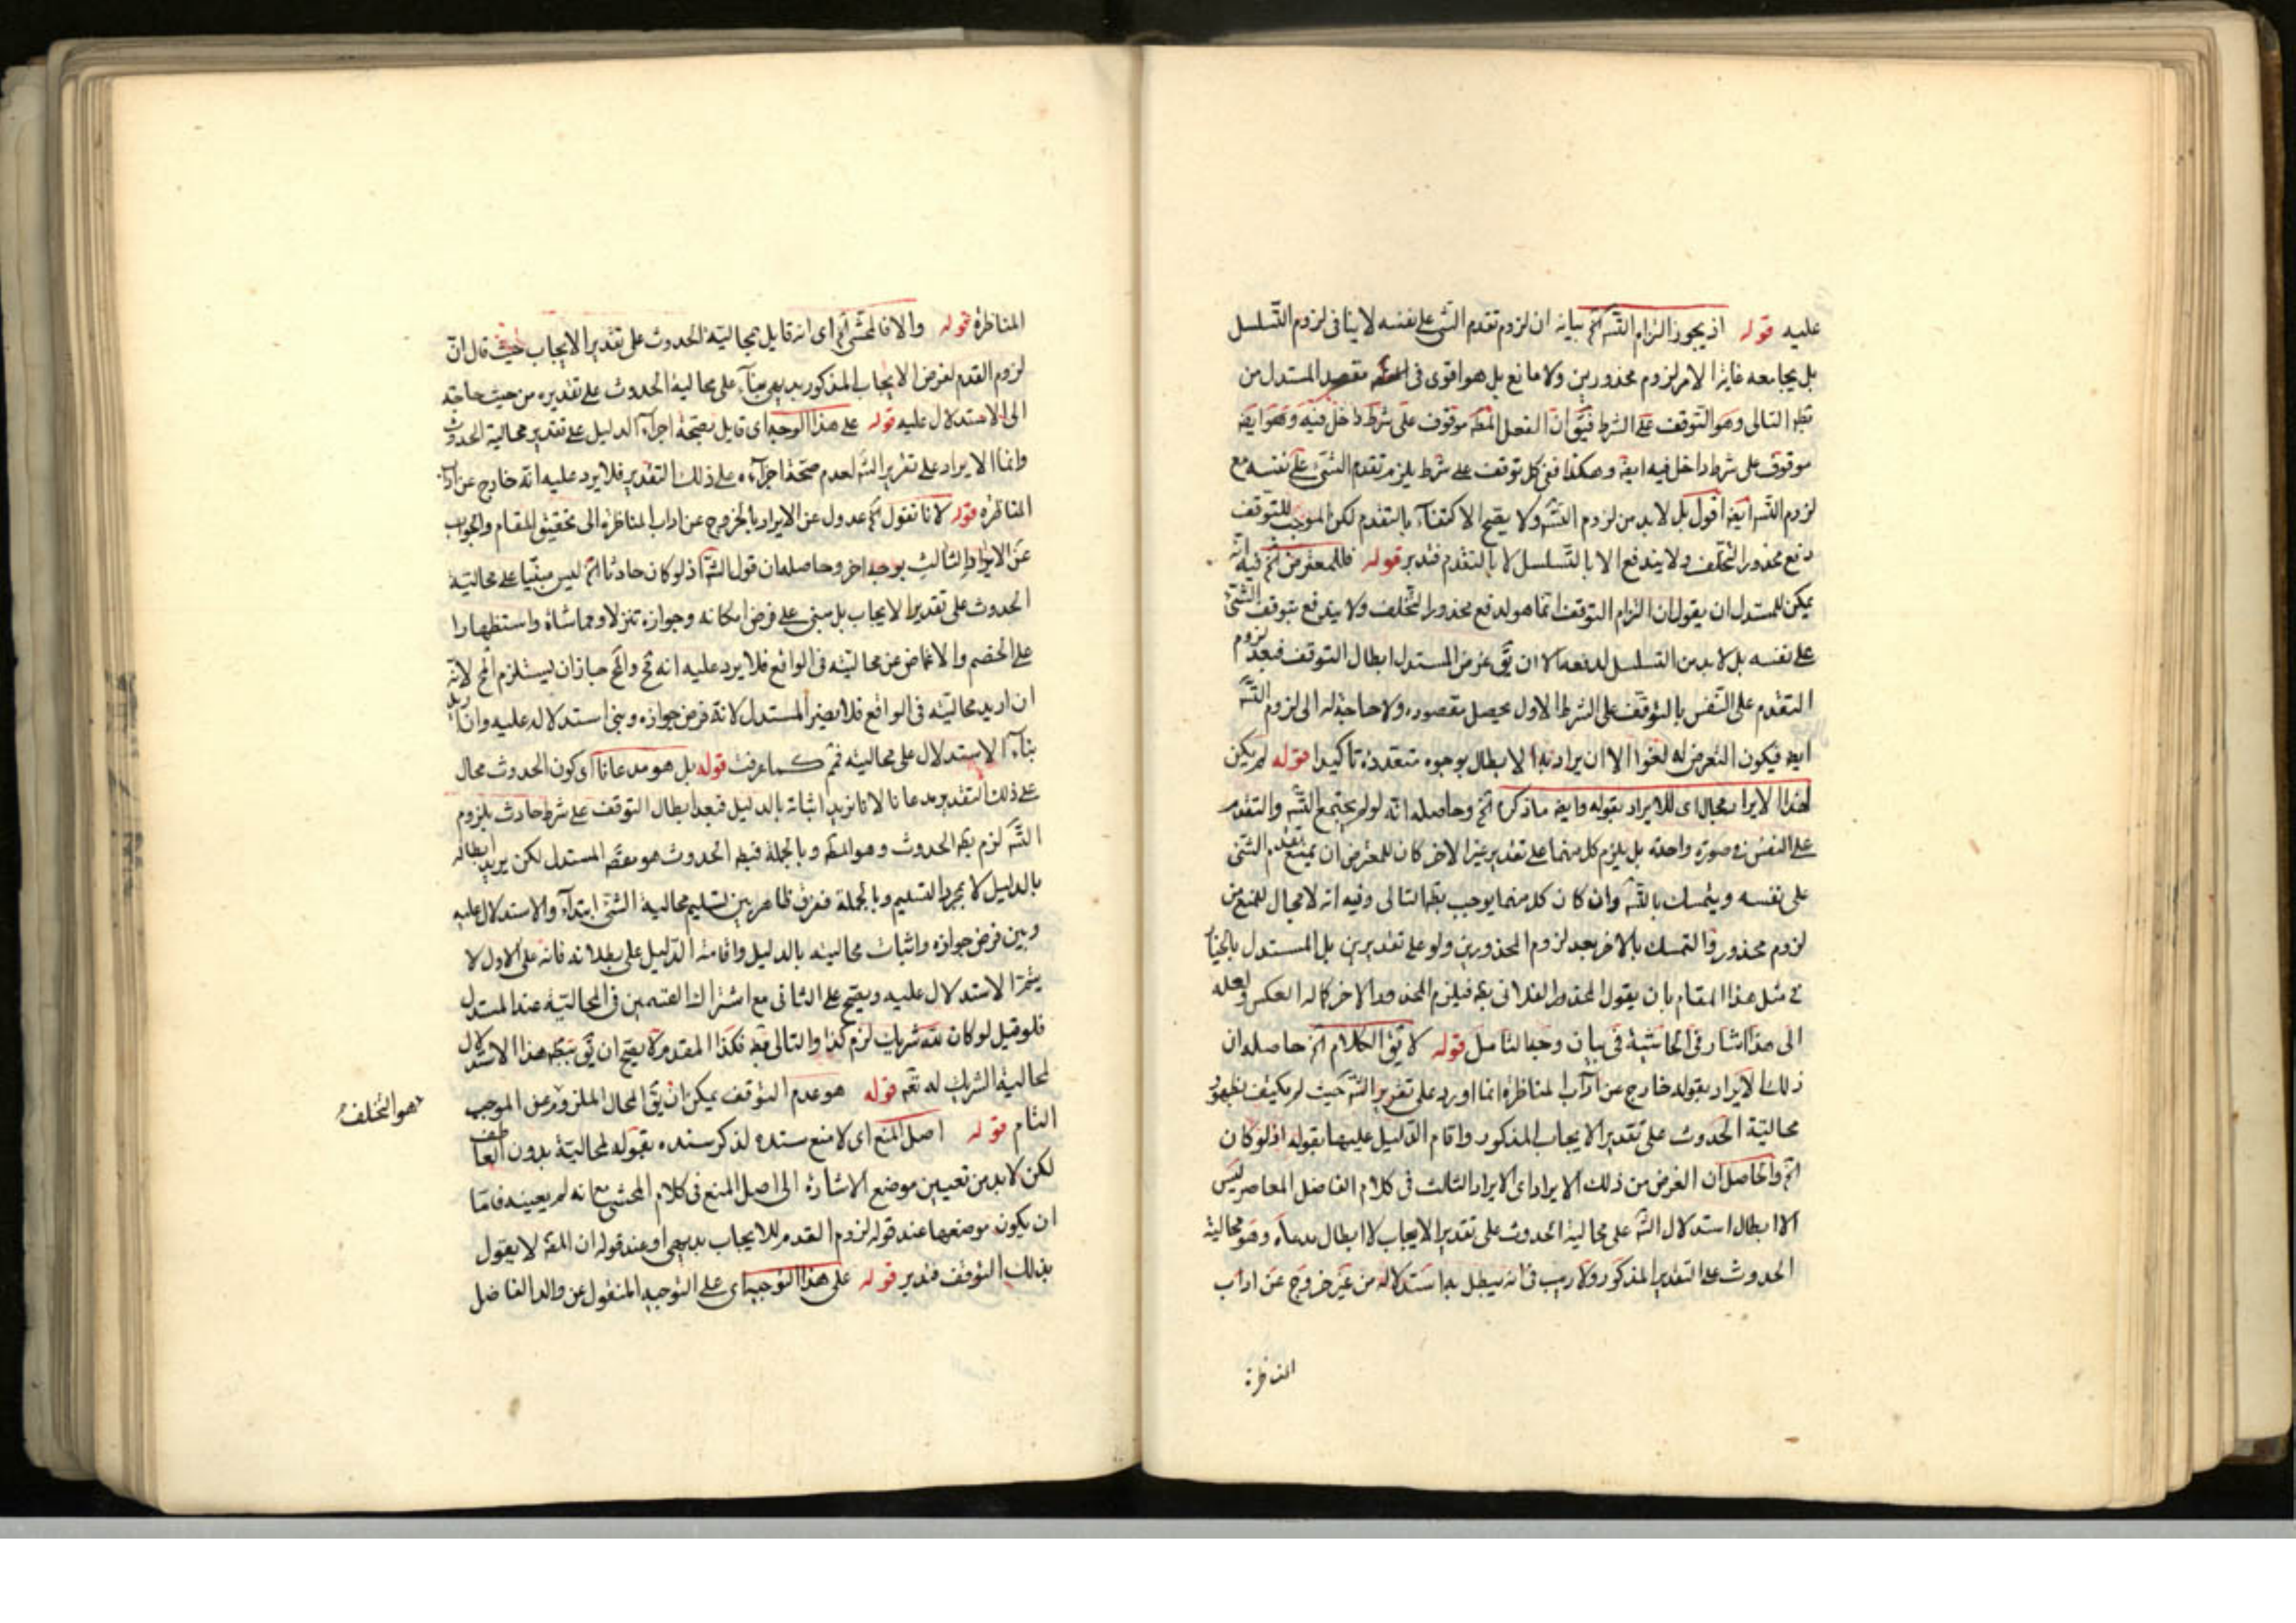 عليه قوله اذ يجوز التزام التسه الخ بيانه ان لزوم تقدم الشئ على نفسه لا ينافى لزوم التسلسل
بل يجامعه غاية الامر لزوم محذورين ولا مانع بل هو اقوى فى مقصد المستدل من
التالى وهو التوقف على الشرط ان الفعل موقوف على شرط داخل فيه وهو ايضه
موقوف على شرط داخل فيه ايضه وهكذا ففى كل توقف على شرط يلزم تقدم الشئ على نفسه مع
لزوم التسه ايضه اقول بل لابد من لزوم التسه ولا يصح الاكتفاء بالتقدم لكن الموجب للتوقف
دفع محذور التخلف ولا يندفع الا بالتسلسل لا بالتقدم فتدبر قوله فللمعترض الخ فيه انه
يمكن للمستدل ان يقول ان التزام التوقف انما هو لدفع محذور التخلف ولا يندفع بتوقف الشئ
على نفسه بل لابد من التسلسل لدفعه الا ان يق غرض المستدل ابطال التوقف فبعد لزوم
التقدم على النفس بالتوقف على الشرط الاول يحصل مقصوده ولا حاجة له الى لزوم التسه
ايضه فيكون التعرض له لغوا الا ان يراد به الابطال بوجوه متعددة تاكيدا قوله لم يكن
لهذا الايراد مجال اى للايراد بقوله وايضه ما ذكره الخ وحاصله انه لو لم يجتمع التسه والتقدم
على النفس فى صورة واحدة بل يلزم كل منهما على تقدير غير الاخر كان للمعترض ان يمنع تقدم الشئ
على نفسه ويتمسك بالتسه وان كان كل منهما يوجب بط التالى وفيه انه لا مجال للمنع من
لزوم محذور والتمسك بالاخر بعد لزوم المحذورين ولو على تقديرين بل المستدل بالخيار
فى مثل هذا المقام بان يقول المحذور الفلانى فيلزم المحذور الاخر كما له العكس ولعله
الى هذا اشار فى الحاشية فى بيان وجه التامل قوله لا يق الكلام الخ حاصله ان
ذلك الايراد بقوله خارج عن آداب المناظرة انما اورد على تقرير الشه حيث لم يكتف بظهور
محالية الحدوث على تقدير الايجاب المذكور واقام الدليل عليها بقوله اذ لو كان
الخ والحاصل ان الغرض من ذلك الايراد اى الايراد الثالث فى كلام الفاضل المعاصر ليس
الا ابطال استدلال الشه على محالية الحدوث على تقدير الايجاب لا ابطال مدعاه وهو محالية
الحدوث على التقدير المذكور ولا ريب فى انه يبطل بها استدلاله من غير خروج عن اداب
المناظرة
المناظرة قوله والا فالمحشى الخ اى انه قايل بمحالية الحدوث على تقدير الايجاب حيث قال ان
لزوم القدم لفرض الايجاب المذكور بديهى بناء على محالية الحدوث على تقديره من حيث حاجته
الى الاستدلال عليه قوله على هذا الوجه اى قايل بصحة اجراء الدليل على تقدير محالية الحدوث
وانما الايراد على تقرير الشه لعدم صحة اجراءه على ذلك التقدير فلا يرد عليه انه خارج عن آداب
المناظرة قوله لانا نقول الخ عدول عن الايراد بالخروج عن اداب المناظرة الى تحقيق المقام والجواب
عن الايراد الثالث بوجه اخر وحاصله ان قول الشه اذ لو كان حادثا الخ ليس مبنيا على محالية
الحدوث على تقدير الايجاب بل مبنى على فرض امكانه وجوازه تنزلا ومماشاة واستظهارا
على الخصم والاغماض عن محاليته فى الواقع فلا يرد عليه انه مح والمح جاز ان يستلزم المح لانه
ان اريد محاليته فى الواقع فلا يضير المستدل لانه فرض جوازه وبنى استدلاله عليه وان اريد
بناء الاستدلال على محاليته فمم كما عرفت قوله بل هو مدعانا اى كون الحدوث محال
على ذلك التقدير مدعانا لانا نريد اثباته بالدليل فبعد ابطال التوقف على شرط حادث بلزوم
التسه لزم بط الحدوث وهو المط وبالجملة فبط الحدوث هو مقص المستدل لكن يريد ابطاله
بالدليل لا بمجرد التسليم وبالجملة ففرق ظاهر بين تسليم محالية الشئ ابتداء والاستدلال عليه
وبين فرض جوازه واثبات محاليته بالدليل واقامة الدليل على بطلانه فانه على الاول لا
يثمر الاستدلال عليه ويصح على الثانى مع اشتراك القسمين فى المحالية عند المستدل
فلو قيل لو كان لله شريك لزم كذا والتالى بط فكذا المقدم لا يصح ان يق هذا الاستدلال
لمحالية الشريك له تعه قوله هو عدم التوقف يمكن ان يق المحال الملزوم عن الموجب
هو التخلف
التام قوله اصل المنع اى لا منع سنده لذكر سنده بقوله لمحالية بدون العاطف
لكن لابد من تعيين موضع الاشارة الى اصل المنع فى كلام المحشى مع انه لم يعينه فاما
ان يكون موضعها عند قوله لزوم القدم للايجاب بديهى او عند قوله ان المقه لا يقول
بذلك التوقف فتدبر قوله على هذا التوجيه اى على التوجيه المنقول عن والد الفاضل